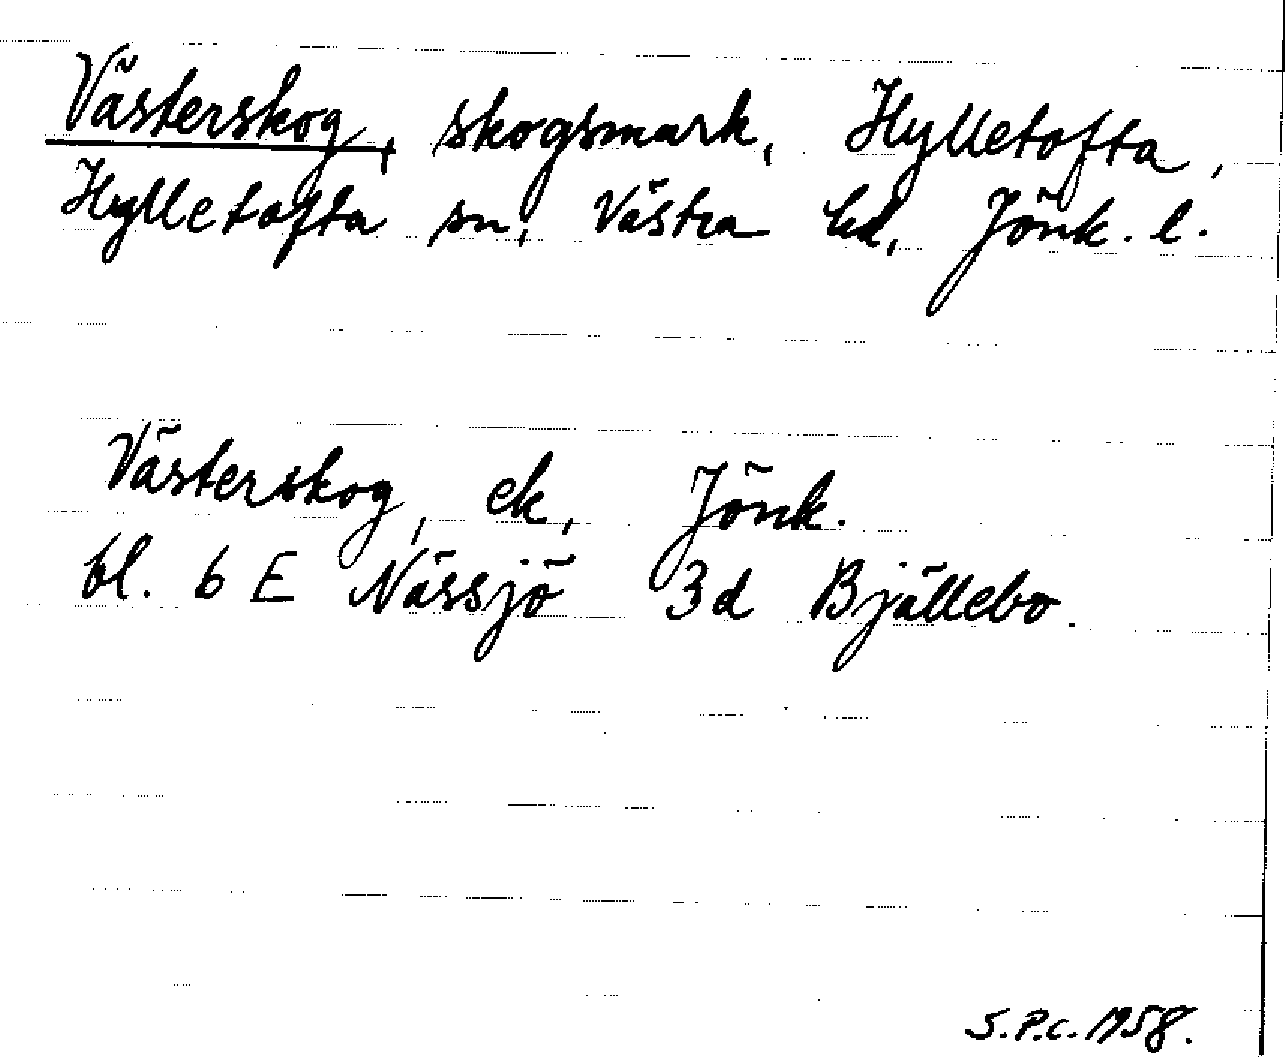 Västerskog, skogsmark, Hylletofta,
Hylletofta sn, Västra hd, Jönk. l.
Västerskog, ek, Jönk.
bl. 6 E Nässjö 3d Bjällebo.
S.P.C. 1958.